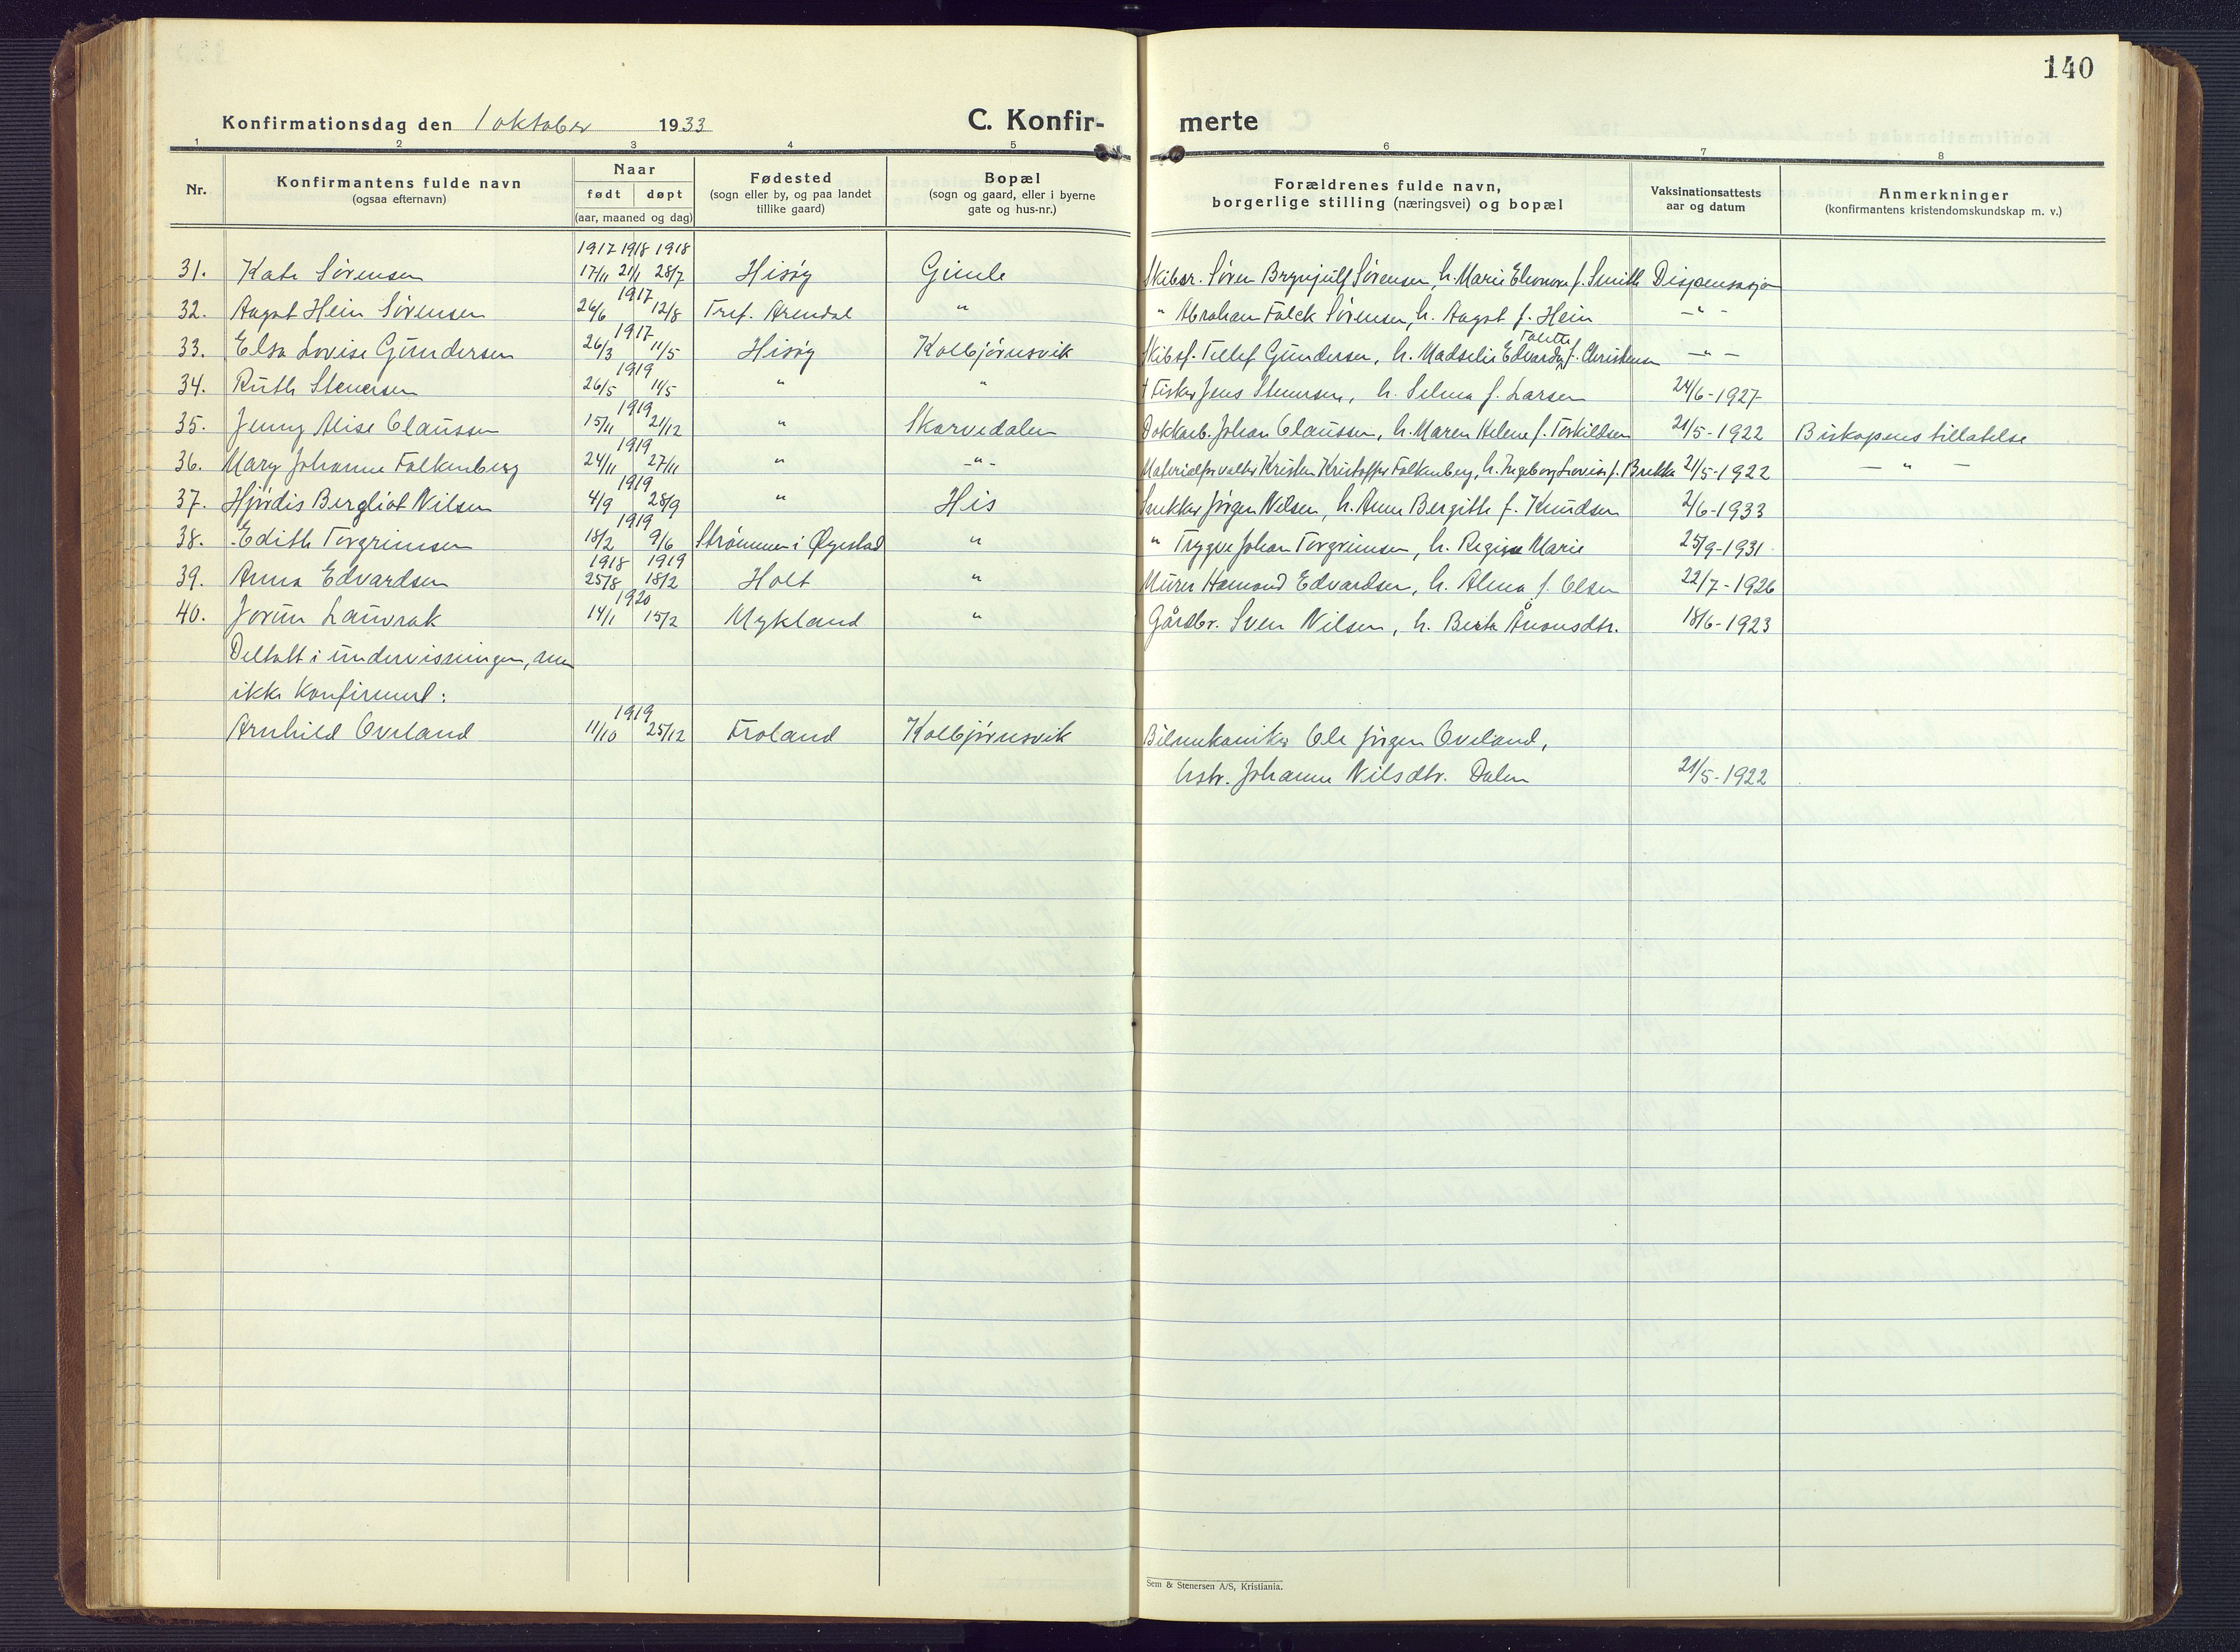 140
Konfirmationsdag den 1 oktober 1933 C. Konfir- merte
1 2 3 4 5 6 7 8
Nr. Konfirmantens fulde navn (ogsaa efternavn) Naar født døpt (aar, maaned og dag) Fødested (sogn eller by, og paa landet tillike gaard) Bopæl (sogn og gaard, eller i byerne gate og hus-nr.) Forældrenes fulde navn, borgerlige stilling (næringsvei) og bopæl Vaksinationsattests aar og datum Anmerkninger (konfirmantens kristendomskundskap m. v.)
1917 1918 1918
31. Kate Sørensen 17/11 21/1 28/7 Hisøy Gimle Skibsr. Søren Brynjulf Sørensen, h. Marie Eleonora f. Smith Dispensasjon
1917
32. Aagot Hein Sørensen 26/6 12/8 Tref. Arendal " " Abraham Falck Sørensen, h. Aagot f. Hein - " -
1917
33. Elsa Lovise Gundersen 26/3 11/5 Hisøy Kolbjørnsvik Skibsf. Tellef Gundersen, h. Madselie Edvardy f. Christensen - " -
1919
34. Ruth Stenersen 26/5 11/5 " " † Fisker Jens Stenersen, h. Selma f. Larsen 24/6-1927
1919
35. Jenny Alise Claussen 15/11 21/12 " Skarvedalen Dokkarb. Johan Claussen, h. Maren Helene f. Torkildsen 21/5-1922 Biskopens tillatelse
1919
36. Mary Johanne Falkenberg 24/11 27/11 " - " - Materialforvalter Kristen Kristoffer Falkenberg, h. Ingeborg Lovise f. Brekka 21/5-1922 - " -
1919
37. Hjørdis Bergliot Nilsen 4/9 28/9 " His Snekker Jørgen Nilsen, h. Anne Bergithe f. Knudsen 2/6-1933
1919
38. Edith Torgrimsen 18/2 9/6 Strømmen i Øyestad " " Trygve Johan Torgrimsen, h. Regine Marie 25/9-1931
1918 1919
39. Anna Edvardsen 25/8 18/2 Holt " Murer Hamond Edvardsen, h. Alma f. Olsen 22/7-1926
1920
40. Jorun Lauvrak 14/1 15/2 Mykland " Gårdbr. Sven Nilsen, h. Berte Ånonsdtr. 18/6-1923
Deltatt i undervisningen, men
ikke konfirmert:
1919
Arnhild Oveland 11/10 25/12 Froland Kolbjørnsvik Bilmekaniker Ole Jørgen Oveland,
hstr. Johanne Nilsdtr. Dalen 21/5-1922
Sem & Stenersen A/S, Kristiania.